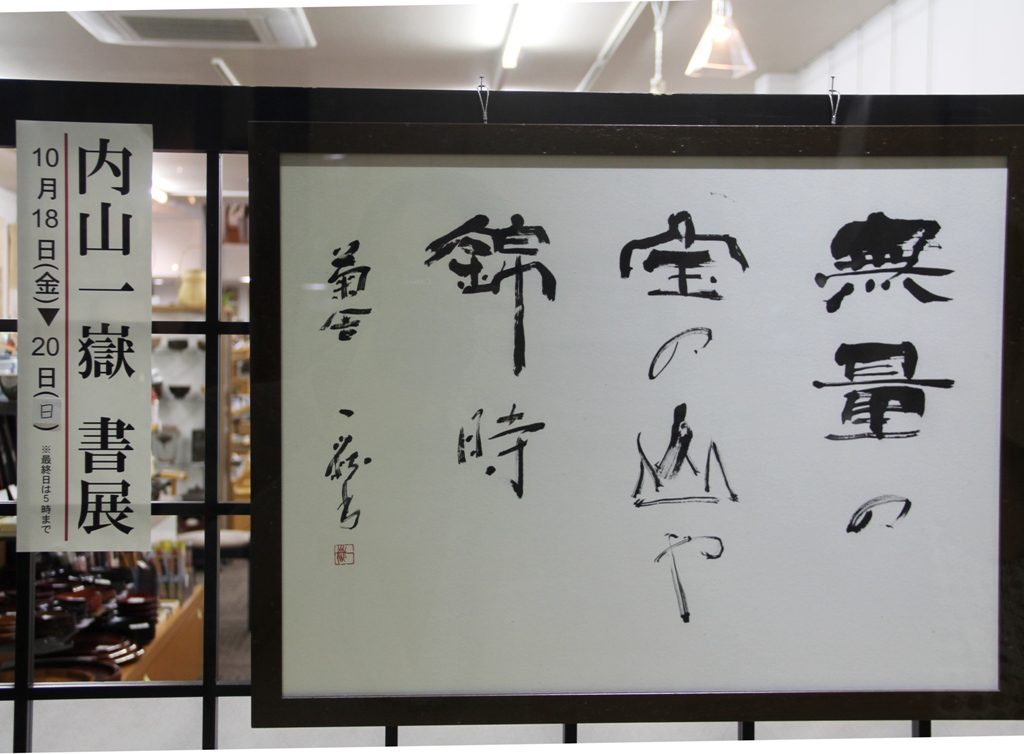 無量の
宝の山や
錦時
菊舎 一嶽書
内山一嶽 書展
10月18日(金)▼20日(日)
※最終日は5時まで